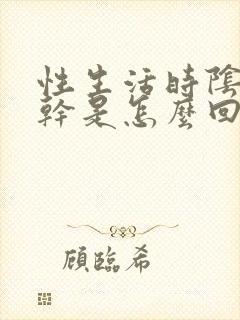 性生活時陰
幹是怎麼回
顧臨希